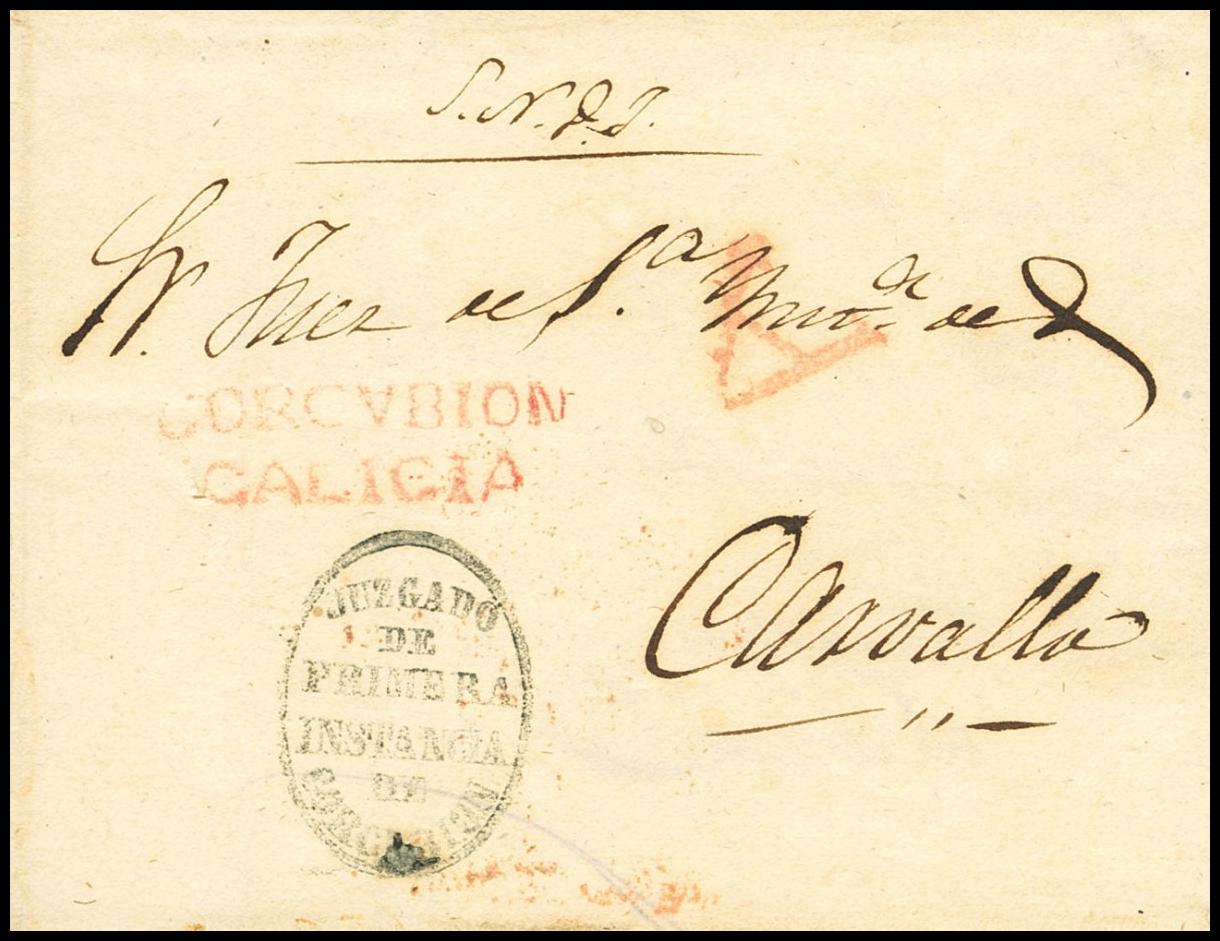 S. N. & J.
Sr. Juez de 1.ª Ynst.ª de
A
CORCVBION
GALICIA
Carvallo
JUZGADO
DE
PRIMERA
INSTANCIA
DE
CORCUBION